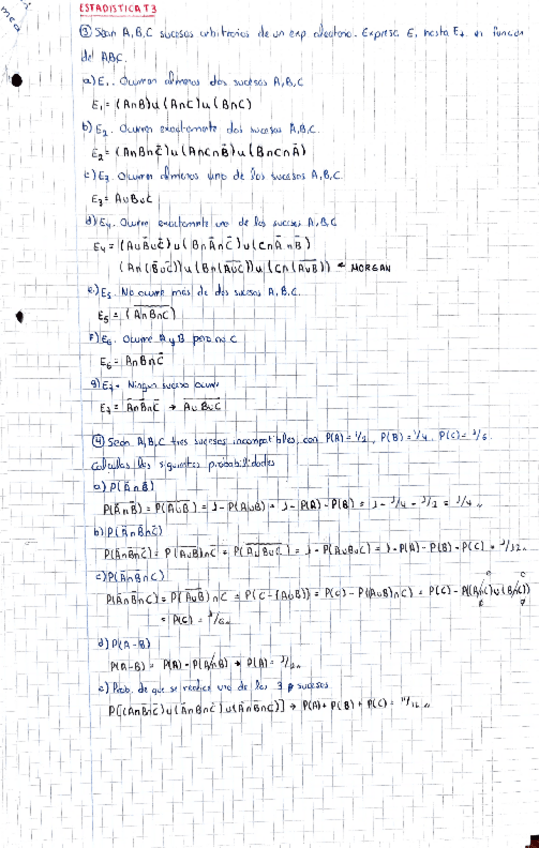 ESTADISTICA T3
③ Sean A, B, C sucesos arbitrarios de un exp aleatorio. Expresa E, hasta E₇ en función
de ABC.
a) E₁. Ocurren al menos dos sucesos A, B, C
E₁ = (A∩B)∪(A∩C)∪(B∩C)
b) E₂. Ocurren exactamente dos sucesos A, B, C.
E₂ = (A∩B∩C̄)∪(A∩C∩B̄)∪(B∩C∩Ā)
c) E₃. Ocurren al menos uno de los sucesos A, B, C.
E₃ = A∪B∪C
d) E₄. Ocurre exactamente uno de los sucesos A, B, C
E₄ = (A∪B̄∪C̄)∪(B∩Ā∩C̄)∪(C∩Ā∩B̄)
(A∩(B̄∪C̄))∪(B∩(A̅∪̅C̅))∪(C∩(A̅∪̅B̅)) ← MORGAN
e) E₅. No ocurre más de dos sucesos A, B, C.
E₅ = (A̅∩̅B̅∩̅C̅)
F) E₆. Ocurre A y B pero no C
E₆ = A∩B∩C̄
g) E₇. Ningun suceso ocurre
E₇ = Ā∩B̄∩C̄ → A̅∪̅B̅∪̅C̅
④ Sean A, B, C tres sucesos incompatibles, con P(A) = 1/2, P(B) = 1/4, P(C) = 1/6.
Calcula las siguientes probabilidades
a) P(Ā∩B̄)
P(Ā∩B̄) = P(A̅∪̅B̅) = 1 - P(A∪B) = 1 - P(A) - P(B) = 1 - 1/4 - 1/2 = 1/4
b) P(Ā∩B̄∩C̄)
P(Ā∩B̄∩C̄) = P(A̅∪̅B̅)∩C̄ = P(A̅∪̅B̅∪̅C̅) = 1 - P(A∪B∪C) = 1 - P(A) - P(B) - P(C) = 1/12
c) P(Ā∩B̄∩C)
P(Ā∩B̄∩C) = P(A̅∪̅B̅)∩C = P(C-(A∪B)) = P(C) - P((A∪B)∩C) = P(C) - P((A∩C)∪(B∩C))
= P(C) = 1/6
d) P(A-B)
P(A-B) = P(A) - P(A∩B) → P(A) = 1/2
e) Prob. de que se realice uno de los 3 sucesos
P[(A∩B̄∩C̄)∪(Ā∩B∩C̄)∪(Ā∩B̄∩C)] → P(A) + P(B) + P(C) = 11/12